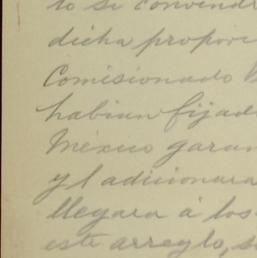 to si convendr
dicha propor
Comisionado
habian fijad
México garan
y l adicionara
llegara á los
este arreglo, s